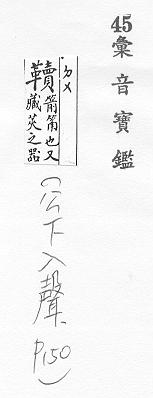 45彙音寶鑑
ㄉㄨ
韇箭筩也又
藏筴之器
(公下入聲P.150)